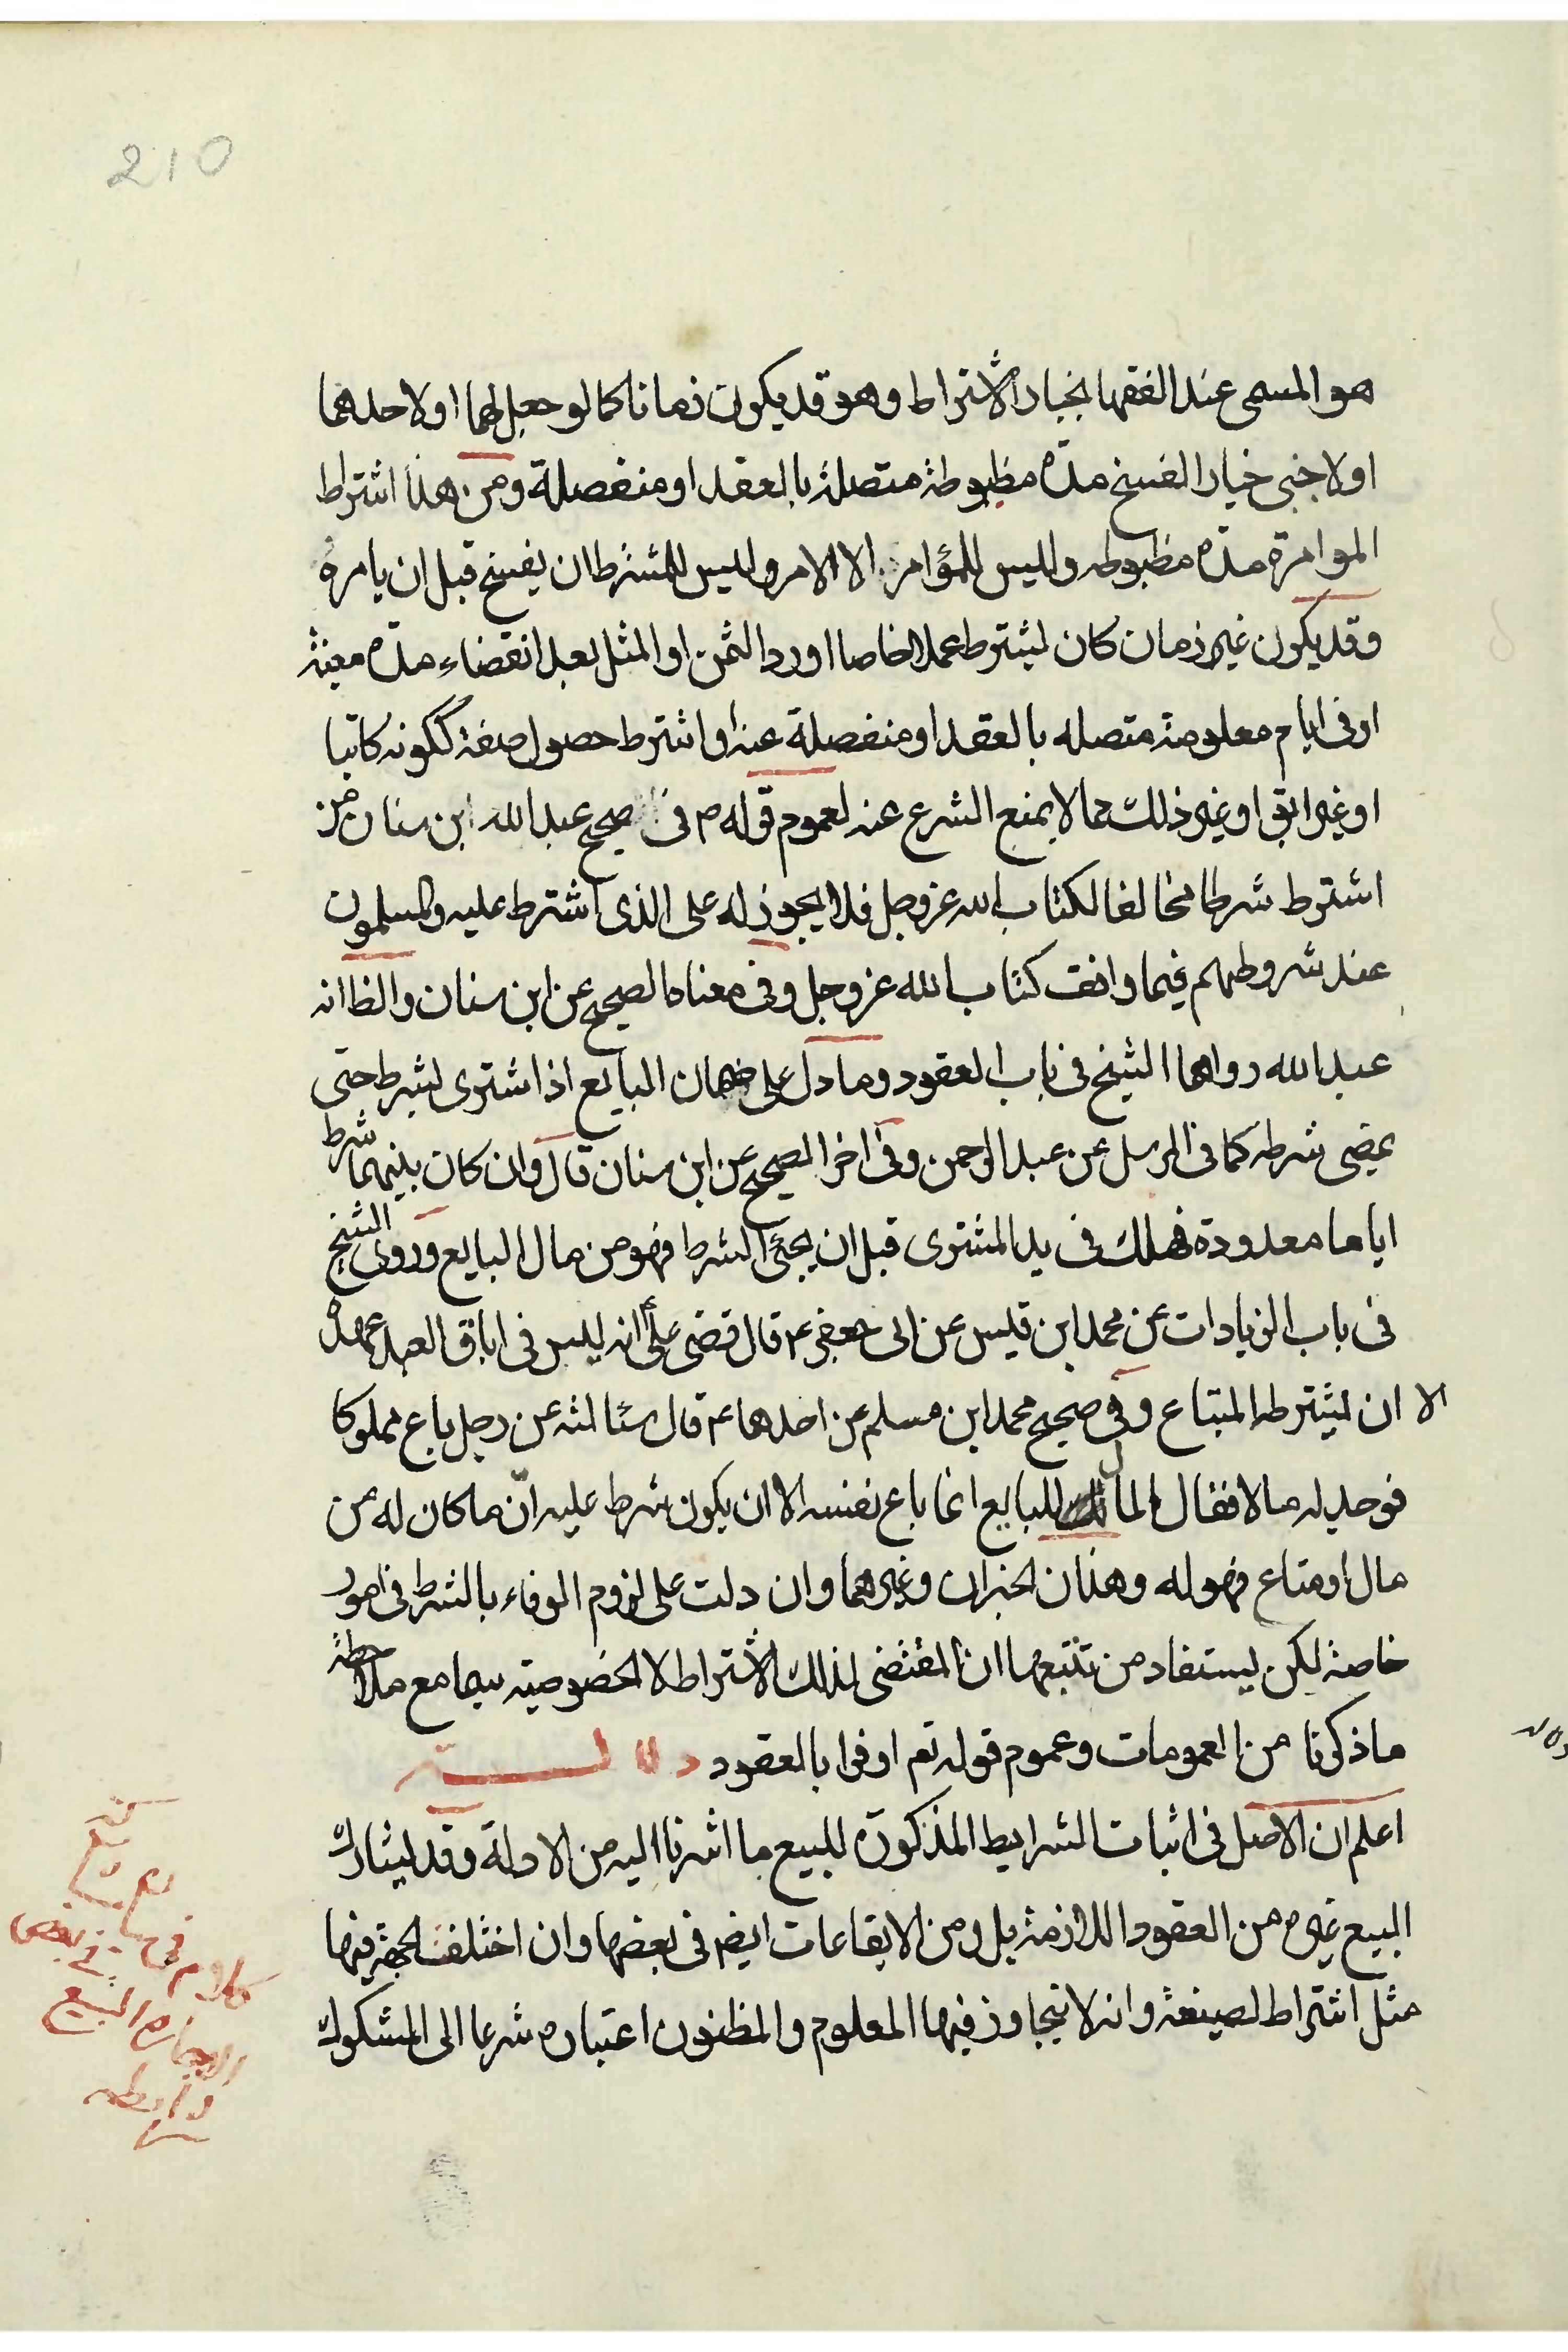 210
هو المسمى عند الفقها بخيار الاشتراط وهو قد يكون زمانا كما لو جعل لهما او لاحدهما
او لاجنبي خيار الفسخ مدة مظبوطة متصلة بالعقد او منفصلة ومن هذا اشتراط
الموامرة مدة مظبوطه وليس للمؤامر الا الامر وليس للمشترط ان يفسخ قبل ان يامره
وقد يكون غير زمان كان يشترط عملا خاصا او رد الثمن او المثل بعد انقضاء مدة معينة
او في ايام معلومة متصله بالعقد او منفصلة عنه او اشترط حصول صفة ككونه كاتبا
او غير ابق او غير ذلك مما لا يمنع الشرع عنه لعموم قوله م في صحيح عبد الله ابن سنان من
اشترط شرطا مخالفا لكتاب الله عز وجل فلا يجوز له على الذى اشترط عليه والمسلمون
عند شروطهم فيما وافق كتاب الله عز وجل وفي معناه الصحيح عن ابن سنان والظ انه
عبد الله رواهما الشيخ في باب العقود وما دل على ضمان البايع اذا اشترى بشرط حتى
يمضى شرطه كما في المرسل عن عبد الرحمن وفي اخر الصحيح عن ابن سنان قال وان كان بينهما شرط
اياما معدودة فهلك في يد المشترى قبل ان يجئ الشرط فهو من مال البايع وروى الشيخ
في باب الزيادات عن محمد ابن قيس عن ابى جعفر ع قال قضى علي ع انه ليس في اباق العبد عهدة
الا ان يشترط المبتاع وفي صحيح محمد ابن مسلم عن احدهما ع قال سئالته عن رجل باع مملوكا
فوجد له مالا فقال المال للبايع انما باع نفسه الا ان يكون شرط عليه انّ ما كان له من
مال او متاع فهو له وهذان الخبران وغيرهما وان دلت على لزوم الوفاء بالشرط في امور
خاصة لكن يستفاد من تتبعها ان المقتضى لذلك الاشتراط لا الخصوصية سيما مع ملاحظة
ما ذكرنا من العمومات وعموم قوله تع اوفوا بالعقود
اعلم ان الاصل في اثبات الشرايط المذكورة للبيع ما اشرنا اليه من الادلة وقد يشارك
البيع غيره من العقود اللازمة بل ومن الايقاعات ايض في بعضها وان اختلفت الجهة فيها
مثل اشتراط الصيغة وانه لا يتجاوز فيها المعلوم والمظنون اعتباره شرعا الى المشكوك
كلام في
البيع